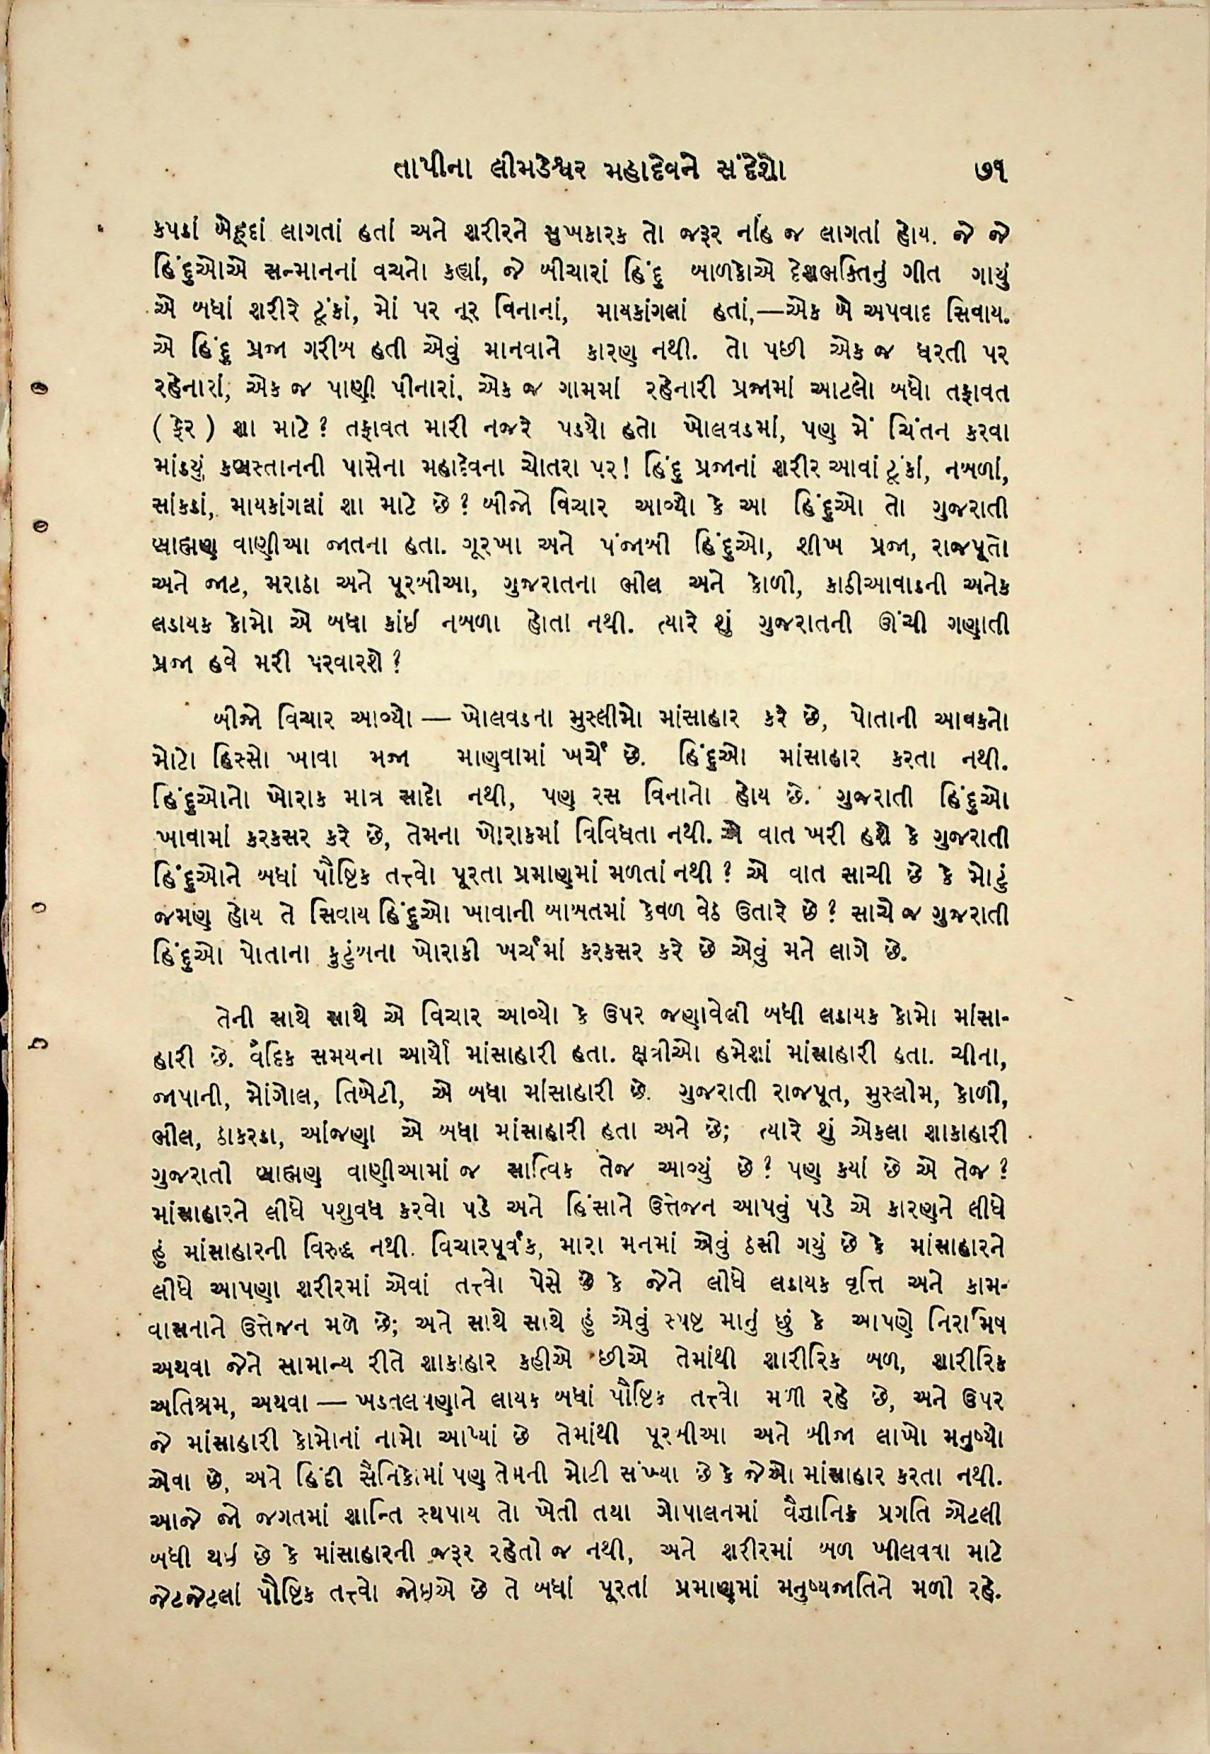 તાપીના લીમડેશ્વર મહાદેવને સંદેશો ૭૧
કપડાં બેહૂદાં લાગતાં હતાં અને શરીરને સુખકારક તો જરૂર નહિ જ લાગતાં હોય. જે જે
હિંદુઓએ સન્માનનાં વચનો કહ્યાં, જે બીચારાં હિંદુ બાળકોએ દેશભક્તિનું ગીત ગાયું
એ બધાં શરીરે ટૂંકાં, મોં પર નૂર વિનાનાં, માયકાંગલાં હતાં,—એક બે અપવાદ સિવાય.
એ હિંદુ પ્રજા ગરીબ હતી એવું માનવાને કારણ નથી. તો પછી એક જ ધરતી પર
રહેનારાં, એક જ પાણી પીનારાં, એક જ ગામમાં રહેનારી પ્રજામાં આટલો બધો તફાવત
( ફેર ) શા માટે? તફાવત મારી નજરે પડયો હતો ખોલવડમાં, પણ મેં ચિંતન કરવા
માંડયું કબ્રસ્તાનની પાસેના મહાદેવના ચોતરા પર! હિંદુ પ્રજાનાં શરીર આવાં ટૂંકાં, નબળાં,
સાંકડાં, માયકાંગલાં શા માટે છે? બીજો વિચાર આવ્યો કે આ હિંદુઓ તો ગુજરાતી
બ્રાહ્મણ વાણીઆ જાતના હતા. ગૂરખા અને પંજાબી હિંદુઓ, શીખ પ્રજા, રાજપૂતો
અને જાટ, મરાઠા અને પૂરબીઆ, ગુજરાતના ભીલ અને કોળી, કાઠીઆવાડની અનેક
લડાયક કોમો એ બધા કાંઈ નબળા હોતા નથી. ત્યારે શું ગુજરાતની ઊંચી ગણાતી
પ્રજા હવે મરી પરવારશે?
બીજો વિચાર આવ્યો — ખોલવડના મુસ્લીમો માંસાહાર કરે છે, પોતાની આવકનો
મોટો હિસ્સો ખાવા મજા માણવામાં ખર્ચે છે. હિંદુઓ માંસાહાર કરતા નથી.
હિંદુઓનો ખોરાક માત્ર સાદો નથી, પણ રસ વિનાનો હોય છે. ગુજરાતી હિંદુઓ
ખાવામાં કરકસર કરે છે, તેમના ખોરાકમાં વિવિધતા નથી. એ વાત ખરી હશે કે ગુજરાતી
હિંદુઓને બધાં પૌષ્ટિક તત્ત્વો પૂરતા પ્રમાણમાં મળતાં નથી? એ વાત સાચી છે કે મોટું
જમણ હોય તે સિવાય હિંદુઓ ખાવાની બાબતમાં કેવળ વેઠ ઉતારે છે? સાચે જ ગુજરાતી
હિંદુઓ પોતાના કુટુંબના ખોરાકી ખર્ચમાં કરકસર કરે છે એવું મને લાગે છે.
તેની સાથે સાથે એ વિચાર આવ્યો કે ઉપર જણાવેલી બધી લડાયક કોમો માંસા-
હારી છે. વૈદિક સમયના આર્યો માંસાહારી હતા. ક્ષત્રીઓ હમેશાં માંસાહારી હતા. ચીના,
જાપાની, મોંગોલ, તિબેટી, એ બધા માંસાહારી છે. ગુજરાતી રાજપૂત, મુસ્લીમ, કોળી,
ભીલ, ઠાકરડા, આંજણા એ બધા માંસાહારી હતા અને છે; ત્યારે શું એકલા શાકાહારી
ગુજરાતી બ્રાહ્મણ વાણીઆમાં જ સાત્વિક તેજ આવ્યું છે? પણ કયાં છે એ તેજ?
માંસાહારને લીધે પશુવધ કરવો પડે અને હિંસાને ઉત્તેજન આપવું પડે એ કારણને લીધે
હું માંસાહારની વિરુદ્ધ નથી. વિચારપૂર્વક, મારા મનમાં એવું ઠસી ગયું છે કે માંસાહારને
લીધે આપણા શરીરમાં એવાં તત્ત્વો પેસે છે કે જેને લીધે લડાયક વૃત્તિ અને કામ-
વાસનાને ઉત્તેજન મળે છે; અને સાથે સાથે હું એવું સ્પષ્ટ માનું છું કે આપણે નિરામિષ
અથવા જેને સામાન્ય રીતે શાકાહાર કહીએ છીએ તેમાંથી શારીરિક બળ, શારીરિક
અતિશ્રમ, અથવા — ખડતલપણાને લાયક બધાં પૌષ્ટિક તત્ત્વો મળી રહે છે, અને ઉપર
જે માંસાહારી કોમોનાં નામો આપ્યાં છે તેમાંથી પૂરબીઆ અને બીજા લાખો મનુષ્યો
એવા છે, અને હિંદી સૈનિકોમાં પણ તેમની મોટી સંખ્યા છે કે જેઓ માંસાહાર કરતા નથી.
આજે જો જગતમાં શાન્તિ સ્થપાય તો ખેતી તથા ગોપાલનમાં વૈજ્ઞાનિક પ્રગતિ એટલી
બધી થઈ છે કે માંસાહારની જરૂર રહેતી જ નથી, અને શરીરમાં બળ ખીલવવા માટે
જેટજેટલાં પૌષ્ટિક તત્ત્વો જોઇએ છે તે બધાં પૂરતાં પ્રમાણમાં મનુષ્યજાતિને મળી રહે.